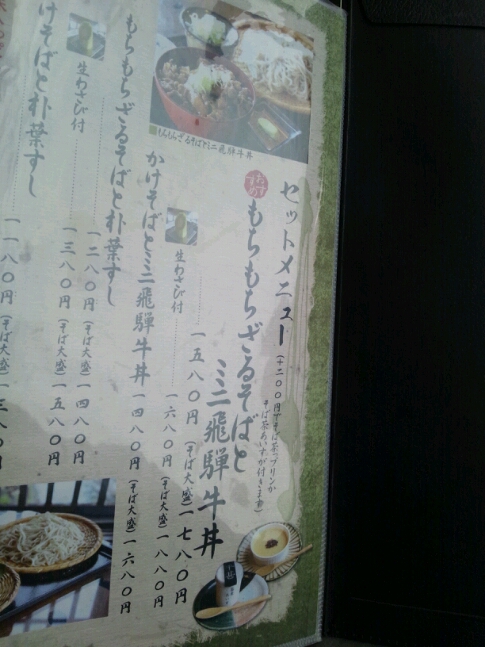 セットメニュー
(+二〇〇円でそば茶プリンか
そば茶あいすが付きます)
おすすめ
もちもちざるそばと
ミニ飛騨牛丼
一五八〇円(そば大盛)一七八〇円
生わさび付
一六八〇円(そば大盛)一八八〇円
もちもちざるそばとミニ飛騨牛丼
かけそばとミニ飛騨牛丼 一四八〇円(そば大盛)一六八〇円
もちもちざるそばと朴葉すし
一二八〇円(そば大盛)一四八〇円
生わさび付
一三八〇円(そば大盛)一五八〇円
けそばと朴葉すし
一一八〇円(そば大盛)一三八〇円